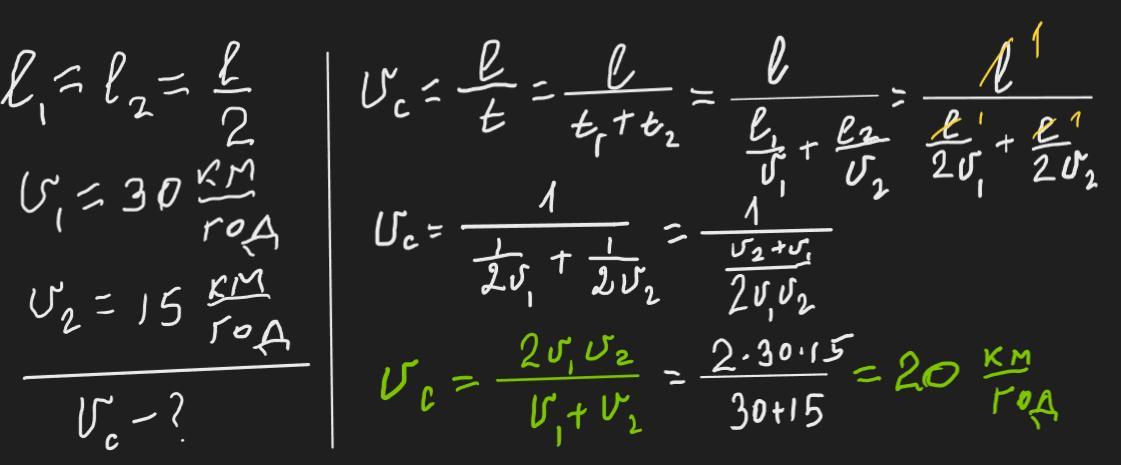 l₁ = l₂ = l/2
v₁ = 30 км/год
v₂ = 15 км/год
v_c - ?
v_c = l/t = l/(t₁ + t₂) = l/(l₁/v₁ + l₂/v₂) = l 1/(l 1/2v₁ + l 1/2v₂)
v_c = 1/(1/2v₁ + 1/2v₂) = 1/((v₂ + v₁)/2v₁v₂)
v_c = 2v₁v₂/(v₁ + v₂) = 2·30·15/(30+15) = 20 км/год